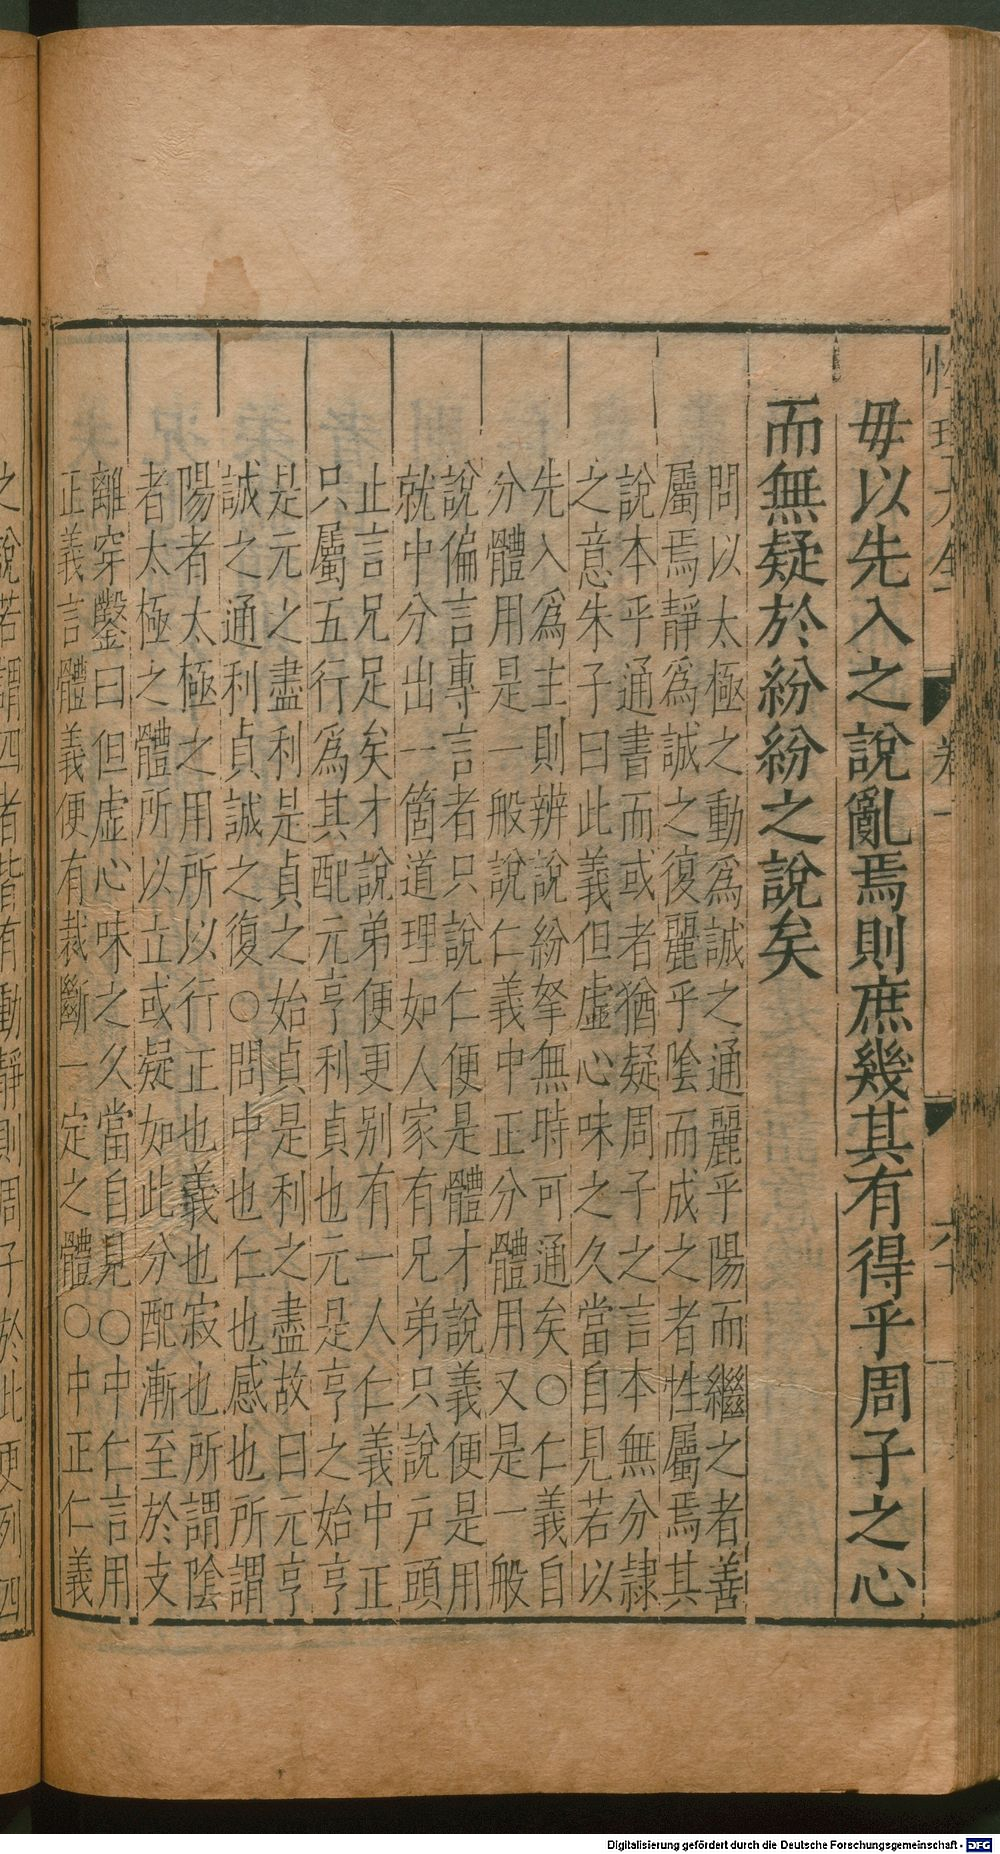 性理大全 卷一 六十
毋以先入之說亂焉則庶幾其有得乎周子之心
而無疑於紛紛之說矣
問以太極之動爲誠之通麗乎陽而繼之者善
屬焉靜爲誠之復麗乎隂而成之者性屬焉其
說本乎通書而或者猶疑周子之言本無分隸
之意朱子曰此義但虛心味之久當自見若以
先入爲主則辨說紛拏無時可通矣○仁義自
分體用是一般說仁義中正分體用又是一般
說偏言專言者只說仁便是體才說義便是用
就中分出一箇道理如人家有兄弟只說戶頭
止言兄足矣才說弟便更别有一人仁義中正
只屬五行爲其配元亨利貞也元是亨之始亨
是元之盡利是貞之始貞是利之盡故曰元亨
誠之通利貞誠之復○問中也仁也感也所謂
陽者太極之用所以行正也義也寂也所謂隂
者太極之體所以立或疑如此分配漸至於支
離穿鑿曰但虛心味之久當自見○中仁言用
正義言體義便有裁斷一定之體○中正仁義
之說若謂四者皆有動靜則周子於此更列四
Digitalisierung gefördert durch die Deutsche Forschungsgemeinschaft - DFG